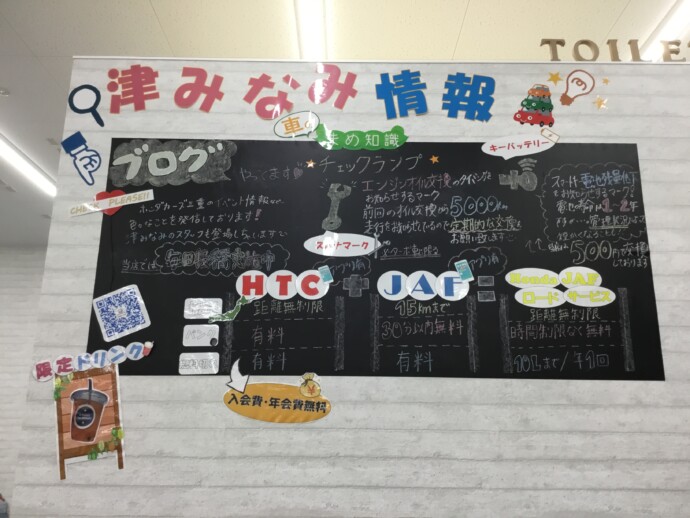 TOILE
津みなみ情報
車の
まめ知識
キーバッテリー
ブログ
やってます
チェックランプ
CHECK PLEASE!!
ホンダカーズ三重のイベント情報や、
色々なことを発信しております!!
津みなみのスタッフも登場しちゃいます
当店では、
エンジンオイル交換のタイミングを
お知らせするマーク
前回のオイル交換から5000km
走行を検知しているので定期的な交換を
お願い致します
スパナマーク
スマートキー
1~2年
500円で交換
しております
HTC + JAF = Honda JAF
ロードサービス
距離無制限
15kmまで
距離無制限
有料
30分以内無料
時間制限なく無料
有料
有料
10Lまで/年1回
限定ドリンク
入会費・年会費無料